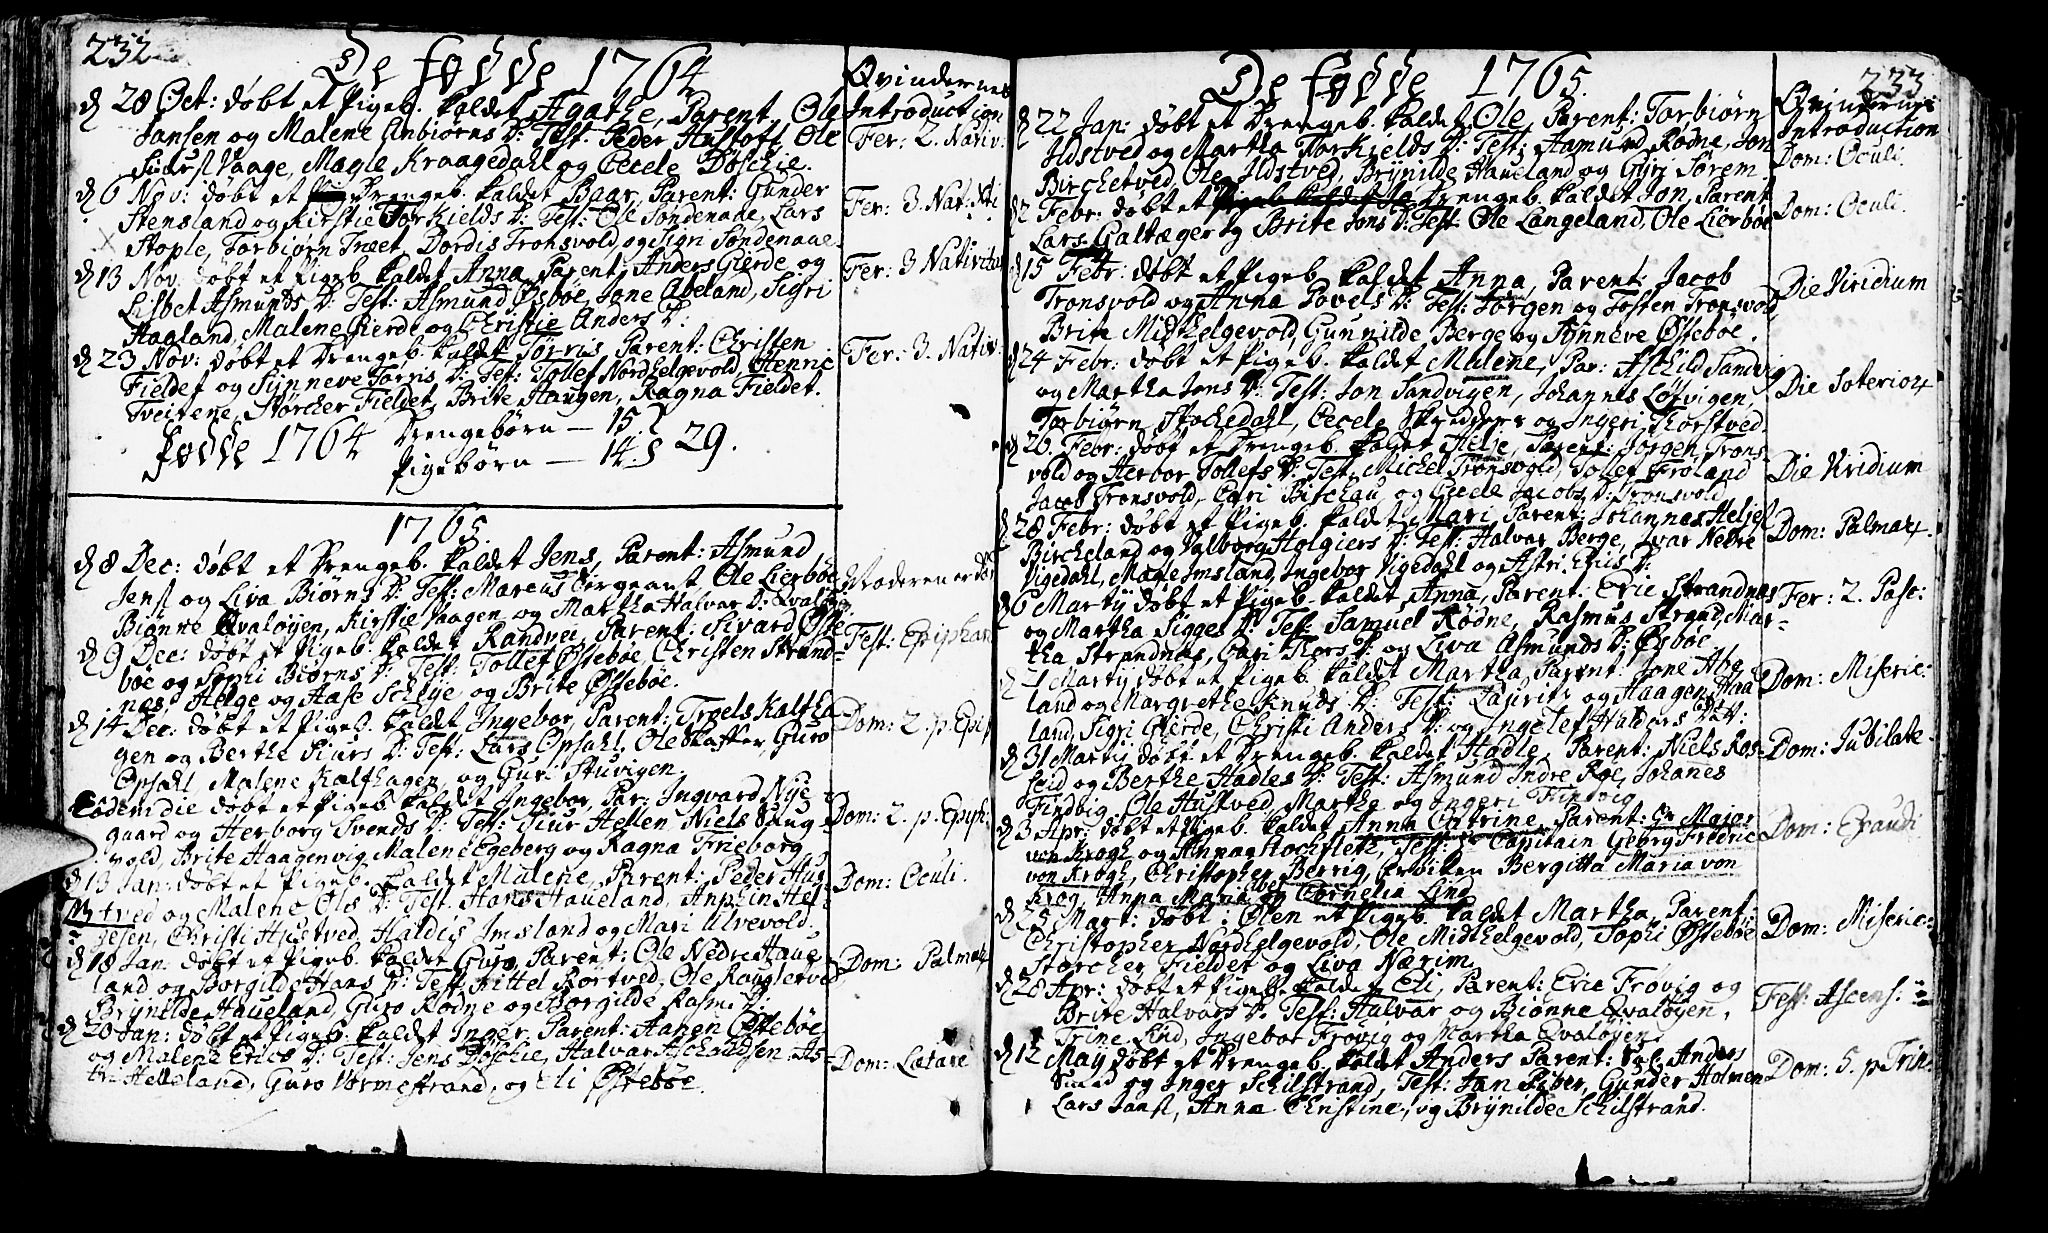 232
De fødde 1764
Qvindernes
Introduction
d 28 Oct: døbt et Pigeb. kaldet Agathe, Parent, Ole
Jansen og Malene Anbiørns D: Test: Peder Hustoft, Ole
Vaage, Magle Kraagedahl og Cecele Døschie.
Fer: 2. Nativ:
d 6 Nov: døbt et Drengeb. kaldet Baar, Parent: Gunder
Stensland og Kirstie Torkields D: Test: Ole Søndenaae, Lars
Stople, Torbiørn Træet, Dordis Tronsvold, og Sigri Søndenaae.
Fer: 3. Nat: Xti
d 13 Nov: døbt et Pigeb. kaldet Anna, Parent, Anders Gierde og
Lisbet Asmunds D: Test: Asmund Øsbøe, Jone Abeland, Sigri
Haaland, Malene Gierde og Christie Anders D:
Fer: 3 Nativitat
d 23 Nov: døbt et Drengeb. kaldet Tørris, Parent: Christen
Fieldet og Synneve Tørris D: Test: Tollef Nordhelgevold, Henric
Tveitene, Størcher Fieldet, Brite Haugen, Ragna Fieldet.
Fer: 3. Nativ:
fødde 1764 Drengebørn — 15
Pigebørn — 14 29.
1765.
d 8 Dec: døbt et Drengeb. kaldet Jens, Parent: Asmund
Jens og Liva Biørns D: Test: Marcus Sergeant, Ole Lierbøe
Biønne Qvaløyen, Kirstie Vaagen og Martha Halvar D: Qvaløyen
Moderen er død
d 9 Dec: døbt et Pigeb. kaldet Randvei, Parent: Sivard Øste-
bøe og Sophi Biørns D: Test: Tollef Østebøe, Christen Strand-
næs, Helge og Aase Scheye og Brite Østebøe.
Fest: Epiphan
d 14 Dec: døbt et Pigeb. kaldet Ingebor, Parent: Troels Kaltha-
gen og Berthe Siurs D: Test: Lars Opsahl, Ole Guro
Opsahl, Malene Kalthagen og Guri Stuvigen.
Dom: 2. p. Epip
Eodem die døbt et Pigeb. kaldet Ingebor, Par: Ingvard Nye-
gaard og Herborg Svends D: Test: Siur Hellen Niels Haug-
vold, Brite Haagenvig, Malene Egeberg og Ragna Frieborg
Dom: 2. p. Epiph:
d 13 Jan: døbt et Pigeb. kaldet Malene, Parent: Peder Hu-
stved og Malene Ols D: Test. Hans Haueland, Anphin Hel-
gesen, Christi Hustved, Haldis Imsland og Mari Ulvevold.
Dom: Oculi.
d 18 Jan: døbt et Pigeb. kaldet Guro, Parent: Ole Nedre Haue-
land og Borgilde Hans D: Test: Kittel Rørtved, Ole Raugletved
Brynilde Haueland, Guro Rødne og Borgilde Rasm: D:
Dom: Palmar
d 20 Jan: døbt et Pigeb. kaldet Inger, Parent: Aanen Østebøe
og Malene Erics D: Test: Jens Døschie, Halvar Aschaudsen, As-
tri Helleland, Guro Vormestrand, og Eli Østebøe.
Dom: Lætare
De fødde 1765.
233
Qvindernes
Introduction
d 22 Jan: døbt et Drengeb. kaldet Ole, Parent: Torbiørn
Ildstved og Martha Torkields D: Test: Aamund Rødne, Jon
Birchetved, Ole Ildstved, Brynilde Haueland og Gyri Sørem
Dom: Oculi.
d 2 Febr: døbt et Drengeb. kaldet Jon, Parent
Lars Galtæger og Brite Jons D: Test: Ole Langeland, Ole Lierbøe
Dom: Oculi.
d 15 Febr: døbt et Pigeb. kaldet Anna, Parent: Jacob
Tronsvold og Anna Povels D: Test: Jørgen og Tosten Tronsvold,
Brite Midthelgevold, Gunnilde Berge og Synneve Østebøe.
Die Viridium
d 24 Febr: døbt et Pigeb. kaldet Malene, Par: Aschild Sandvig
og Martha Jens D: Test: Jon Sandvigen, Johannes Løfvigen,
Torbiørn Stochedahl, Cecele Skredders og Ingeri Thorstved.
Die Soterior
d 26 Febr: døbt et Drengeb. kaldet Helje, Parent: Jørgen Trons-
vold og Herbor Tollefs D: Test. Michel Tronsvold, Tollef Frøland
Jacob Tronsvold, Cari Birchau og Cecele Jacobs D: Tronsvold.
Die Viridium
d 28 Febr: døbt et Pigeb. kaldet Mari Parent: Johannes Heljes
Bircheland og Valborg Holgiers D: Test: Halvar Berge, Ivar Nedre
Vigedahl, Magle Imsland, Ingebor Vigedahl og Astri Erics D:
Dom: Palmar.
d 6 Martÿ døbt et Pigeb. kaldet Anna, Parent: Eric Strandnæs
og Martha Sigges D: Test: Samuel Rødne, Rasmus Strand, Mar-
tha Strandnæs, Cari Thors D: og Liva Asmunds D: Øsbøe
Fer: 2. Pasc:
d Martÿ døbt et Pigeb. kaldet Martha, Parent. Jone Abe-
land og Margrethe Knuds D: Test: Laurits og Haagen Haa-
land, Sigri Gierde, Christi Anders D: og Ingelef Haldors Dat:
Dom: Miseric:
d 31 Martÿ døbt et Drengeb. kaldet Hadle, Parent: Niels Ros-
seid og Berthe Hadles D: Test: Asmund Indre Roe, Johanes
Findvig, Ole Hustved, Martha og Ingeri Findvig
Dom: Jubilate.
d 3 Apr: døbt et Pigeb. kaldet Anna Catrine, Parent: Major
von Krogh og Anna Hochflete, Test: Capitain Georg Fredric
von Krogh, Christopher Berrig, Bergitta Maria von
Krog, Anna Maria og Cornelia Lind
Dom: Exaudi
d 25 Mart: døbt i Ølen et Pigeb. kaldet Martha, Parent:
Christopher Nordhelgevold, Ole Midthelgevold, Sophi Østebøe
Størcher Fieldet og Liva Nærim.
Dom: Miseric:
d 28 Apr: døbt et Pigeb. kaldet Eli, Parent: Eric Frøvig og
Brite Halvars D: Test: Halvar og Biønne Qvaløyen,
Trine Lind, Ingebor Frøvig og Martha Qvaløyen.
Fest: Ascens:
d 12 May døbt et Drengeb. kaldet Anders Parent: Anders
Smed og Inger Schilstrand, Test: Jan Piber, Gunder Holmen
Lars Jans, Anna Christine, og Brynilde Schilstrand.
Dom: 5. p Trin: